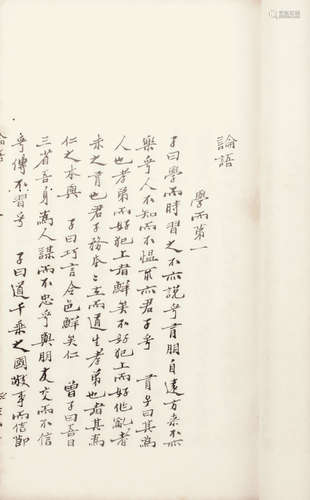 論語
學而第一
子曰學而時習之不亦說乎有朋自遠方来不亦
樂乎人不知而不慍不亦君子乎 有子曰其為
人也孝弟而好犯上者鮮矣不好犯上而好作亂者
未之有也君子務本本立而道生孝弟也者其為
仁之本與 子曰巧言令色鮮矣仁 曾子曰吾日
三省吾身為人謀而不忠乎與朋友交而不信
乎傳不習乎 子曰道千乘之國敬事而信節